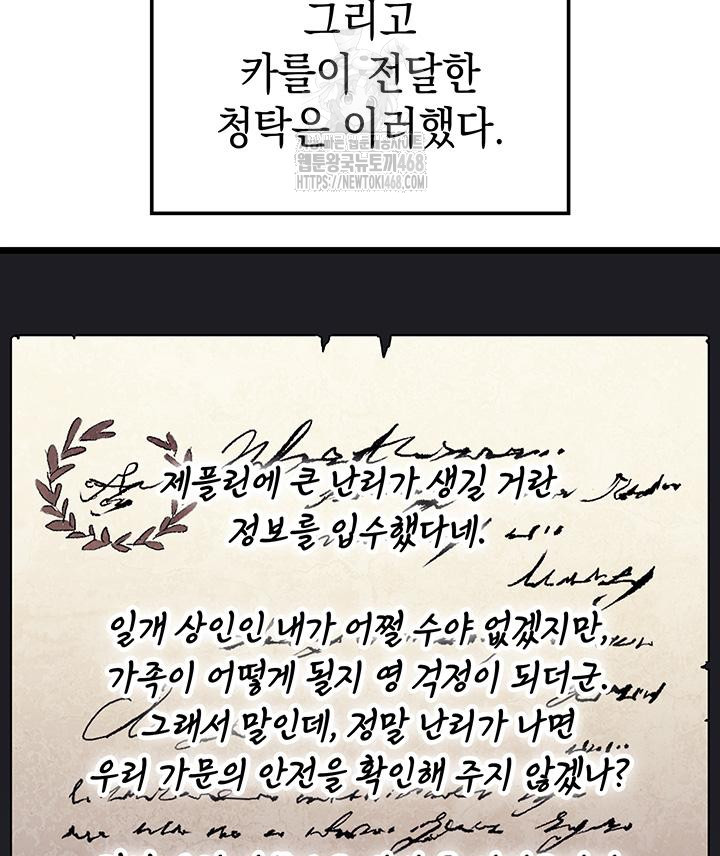 그리고
카를이 전달한
청탁은 이러했다.
웹툰왕국뉴토끼468
HTTPS://NEWTOKI468.COM
제플린에 큰 난리가 생길 거란
정보를 입수했다네.
일개 상인인 내가 어쩔 수야 없겠지만,
가족이 어떻게 될지 영 걱정이 되더군.
그래서 말인데, 정말 난리가 나면
우리 가문의 안전을 확인해 주지 않겠나?